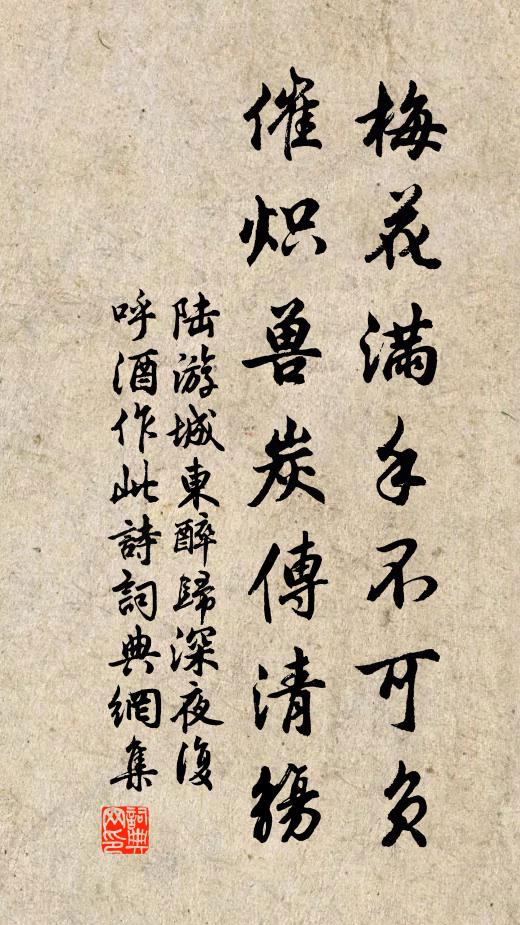 梅花滿手不可負
催炽兽炭傳清觴
陆游城東醉歸深夜復
呼酒作此詩詞典網集
詞典
网印